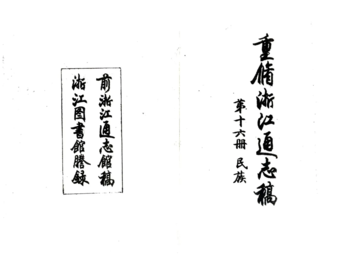 重脩浙江通志稿
第十六冊 民族
前浙江通志館稿
浙江圖書館謄錄